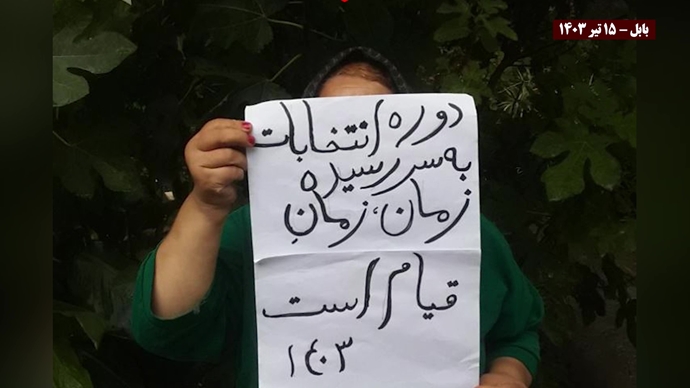 بابل – ۱۵ تیر ۱۴۰۳
دوره انتخابات
به سر رسیده
زمان، زمانِ
قیام است
۱۴۰۳